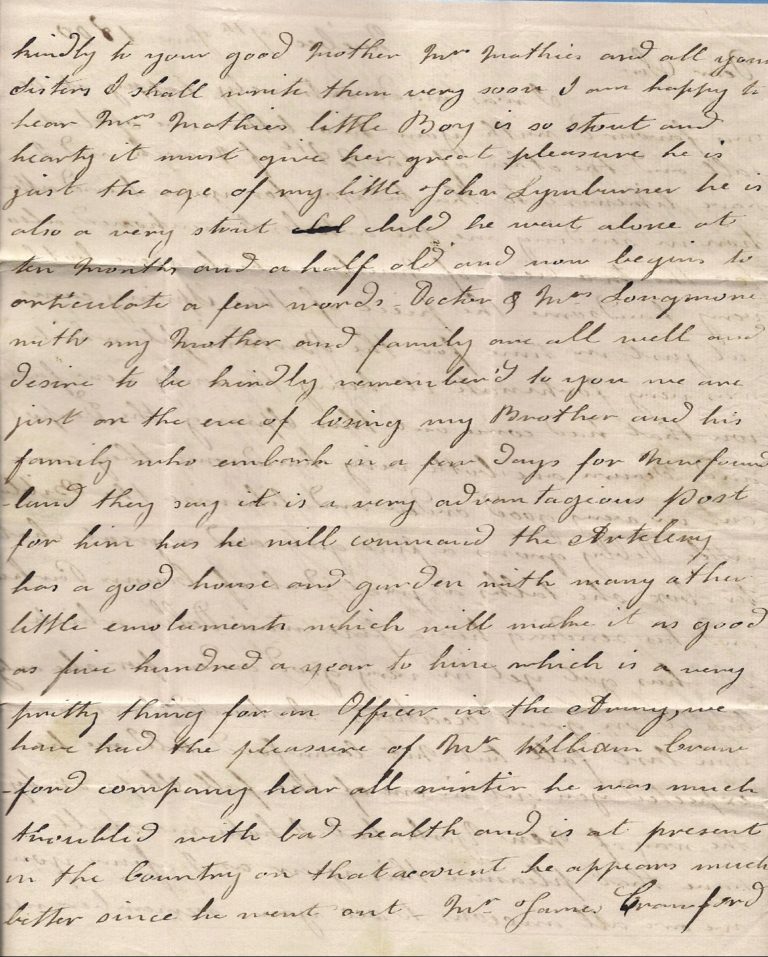 kindly to your good Mother Mrs Mathies and all your
Sisters I shall write them very soon I am happy to
hear Mrs Mathies little Boy is so stout and
hearty it must give her great pleasure he is
just the age of my little John Lymburner he is
also a very stout child he went alone at
ten Months and a half old and now begins to
articulate a few words - Doctor & Mrs Longmore
with my Mother and family are all well and
desire to be kindly remember'd to you we are
just on the eve of losing my Brother and his
family who embark in a few Days for Newfound
-land they say it is a very advantageous Post
for him has he will command the Artelery
has a good house and garden with many other
little emoluments which will make it as good
as five hundred a year to him which is a very
pritty thing for an Officer in the Army, we
have had the pleasure of Mr William Craw
-ford company hear all winter he was much
troubled with bad health and is at present
in the Country on that account he appears much
better since he went out - Mr James Crawford